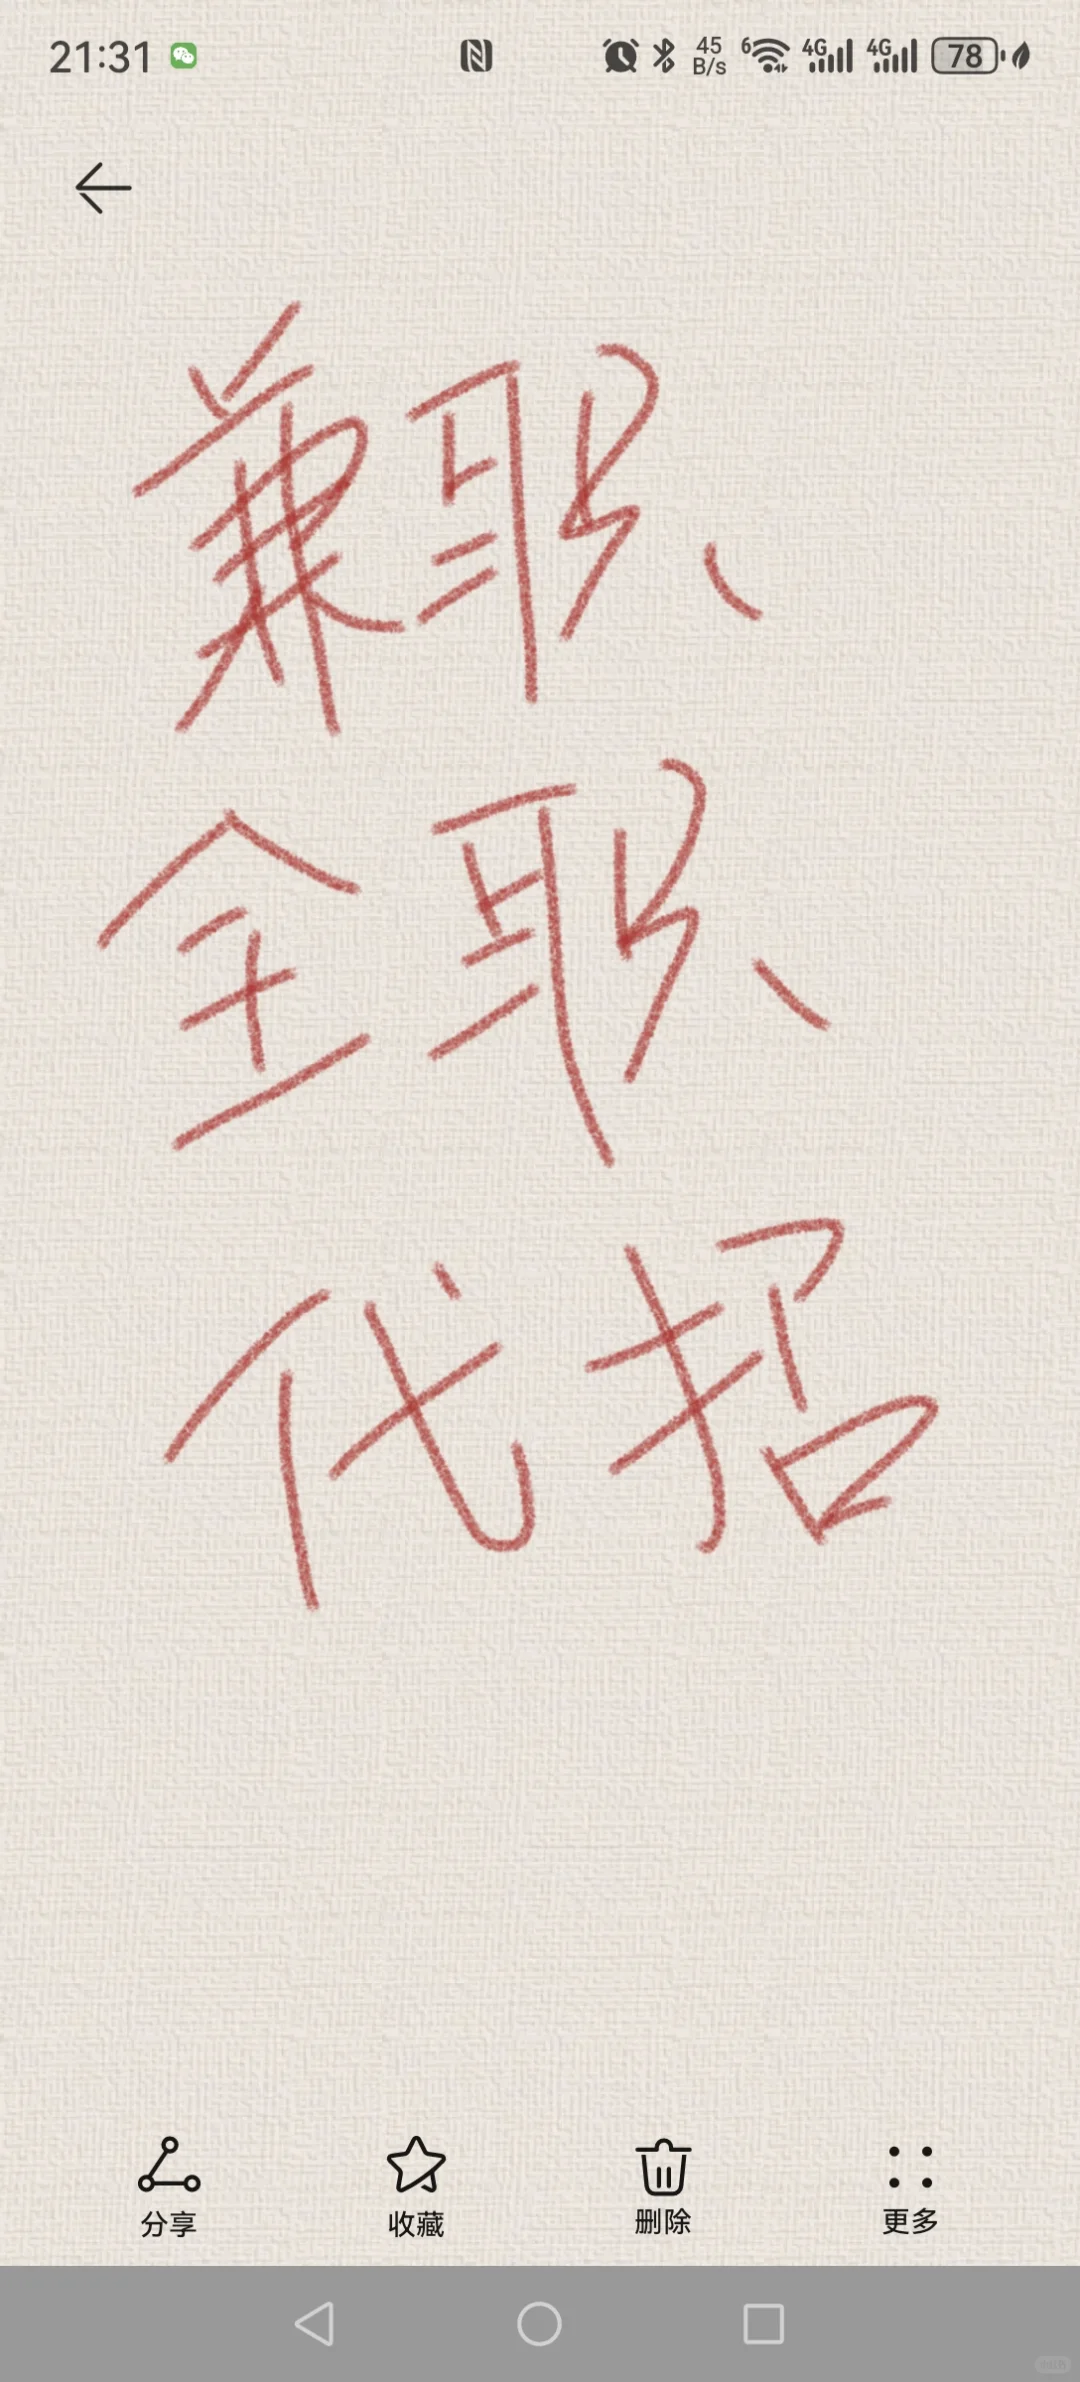 21:31 45 B/s 6 4G 4G 78
兼职、
全职、
代招
分享 收藏 删除 更多